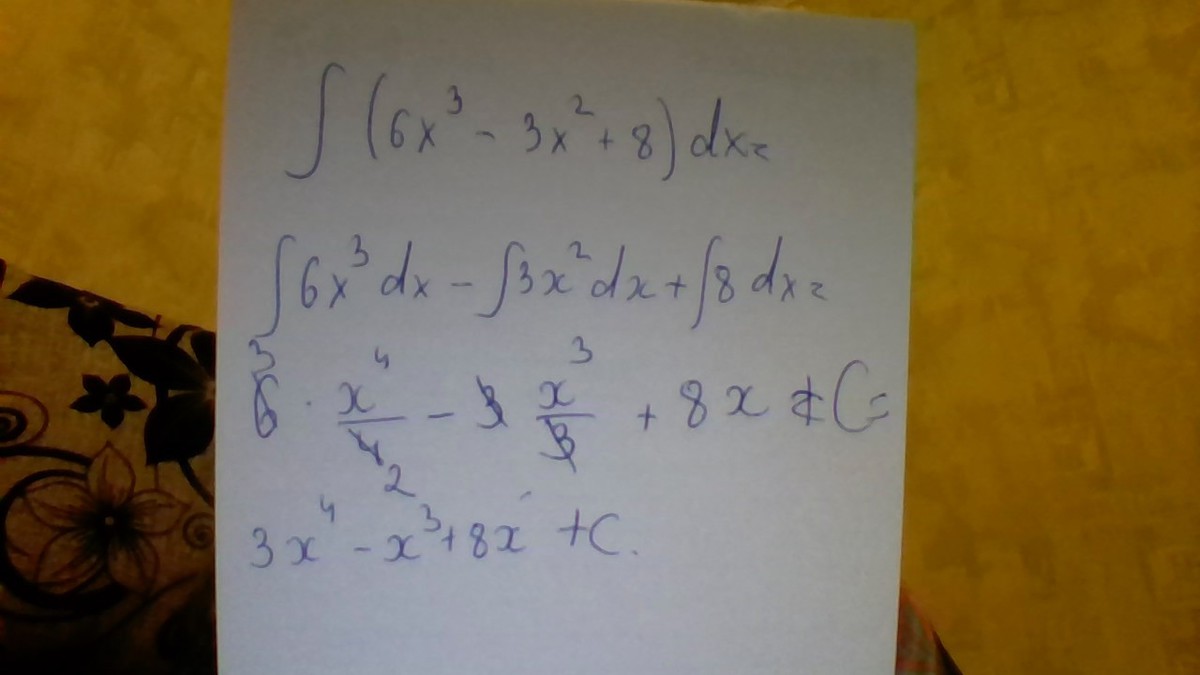 ∫ (6x³ - 3x² + 8) dx =
∫ 6x³ dx - ∫ 3x² dx + ∫ 8 dx =
6 3 · x⁴/4 2 - 3 x³/3 + 8x + C =
3x⁴ - x³ + 8x + C.